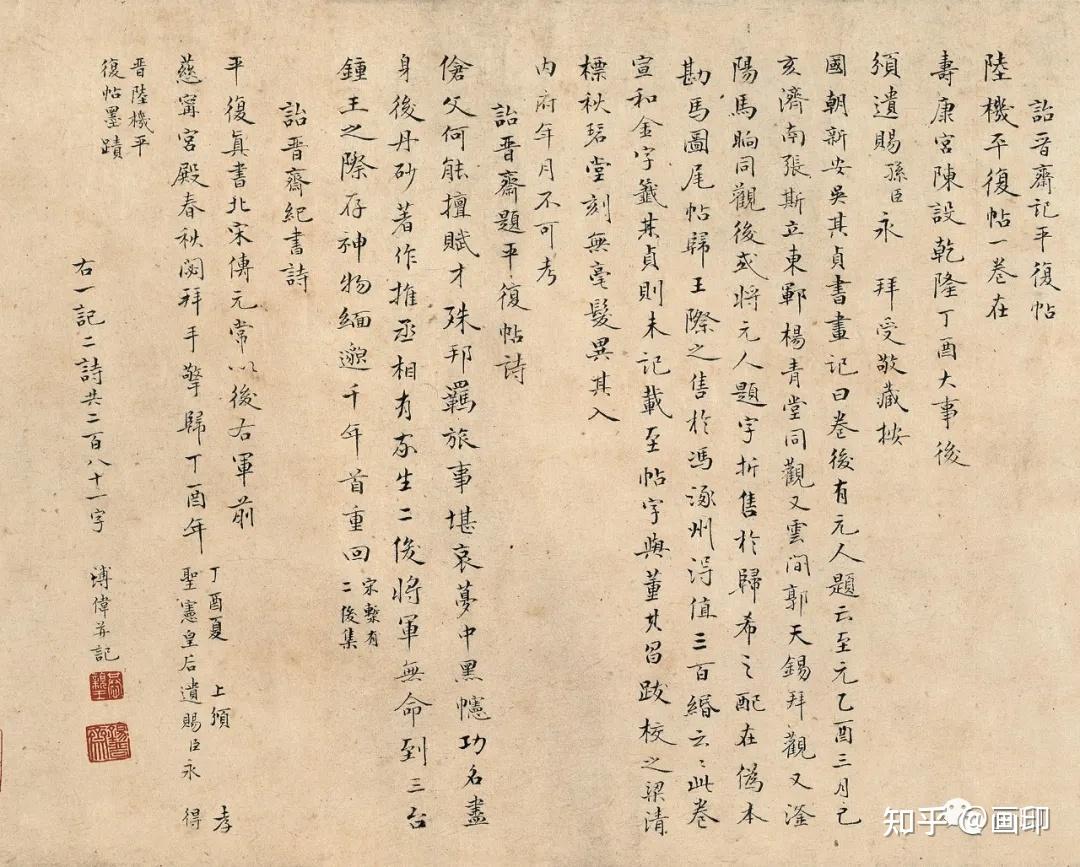 詒晉齋記平復帖
陸機平復帖一卷在
壽康宮陳設乾隆丁酉大事後
頒遺賜孫臣永 拜受敬藏按
國朝新安吳其貞書畫記曰卷後有元人題云至元乙酉三月己
亥濟南張斯立東鄆楊青堂同觀又雲間郭天錫拜觀又滏
陽馬晌同觀後或將元人題字折售於歸希之配在偽本
勘馬圖尾帖歸王際之售於馮涿州得值三百緡云〻此卷
宣和金字籤其貞則未記載至帖字與董其昌跋校之梁清
標秋碧堂刻無毫髮異其入
內府年月不可考
詒晉齋題平復帖詩
傖父何能擅賦才殊邦羈旅事堪哀夢中黑幰功名盡
身後丹砂著作推丞相有家生二俊將軍無命到三台
鍾王之際存神物緬邈千年首重回
宋槧有
二俊集
詒晉齋紀書詩
平復真書北宋傳元常以後右軍前
慈寧宮殿春秋閟拜手擎歸丁酉年
丁酉夏 上頒 孝
聖憲皇后遺賜臣永 得
晉陸機平
復帖墨蹟
右一記二詩共二百八十一字 溥偉并記
恭親王
錫晉齋
知乎 @画印